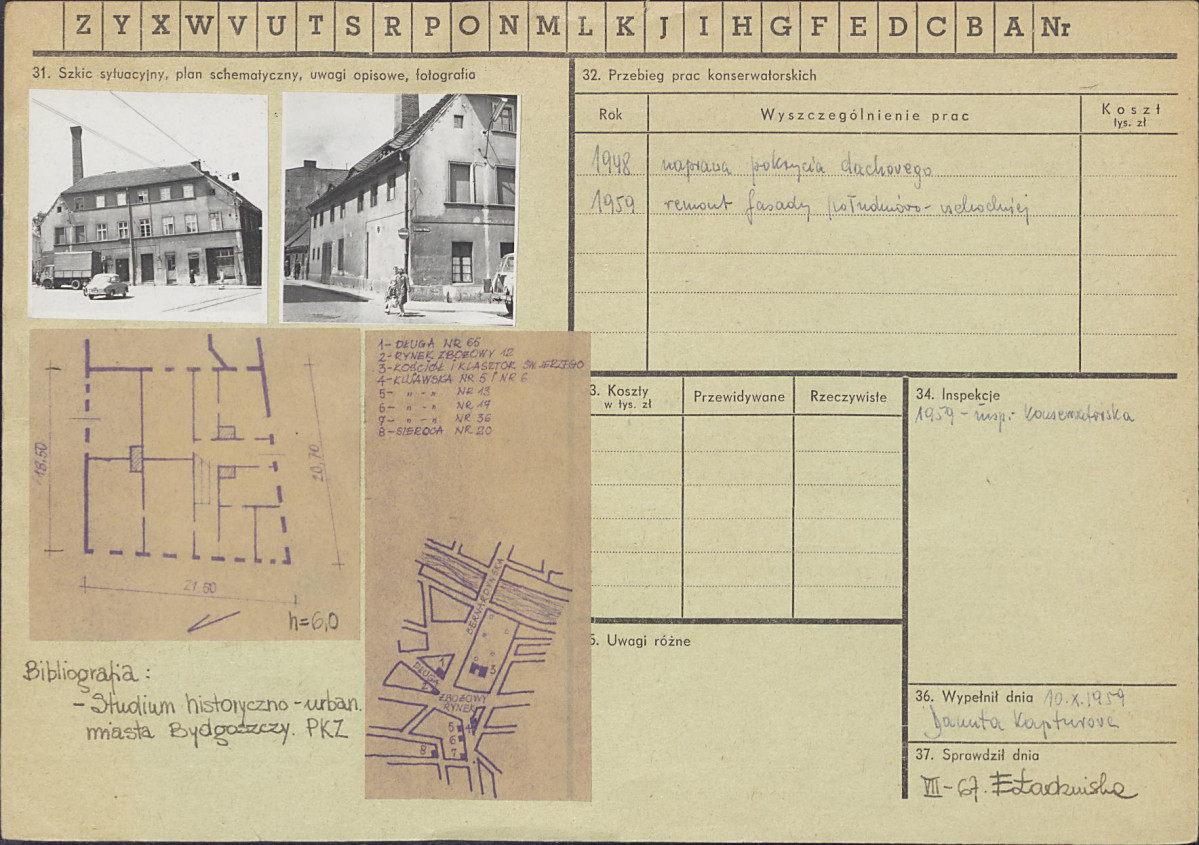 Z Y X W V U T S R P O N M L K J I H G F E D C B A Nr
31. Szkic sytuacyjny, plan schematyczny, uwagi opisowe, fotografia
1-DŁUGA NR 65
2-RYNEK ZBOŻOWY 12
3-KOŚCIÓŁ I KLASZTOR ŚW. JERZEGO
4-KUJAWSKA NR 5 I NR 6
5- " - " NR 13
6- " - " NR 17
7- " - " NR 36
8-SIEROCA NR 20
18,50
20,70
21.50
h=6,0
BERNARDYŃSKA
DŁUGA
1
2
3
ZBOŻOWY
RYNEK
4
5
6
7
8
Bibliografia :
- Studium historyczno-urban.
miasta Bydgoszczy. PKZ
32. Przebieg prac konserwatorskich
Rok
Wyszczególnienie prac
Koszt
tys. zł
1948 naprawa pokrycia dachowego
1959 remont fasady południowo-wschodniej
3. Koszty
w tys. zł
Przewidywane
Rzeczywiste
34. Inspekcje
1959 - insp. konserwatorska
5. Uwagi różne
36. Wypełnił dnia 10.X.1959
Danuta Kapturova
37. Sprawdził dnia
VII-67.